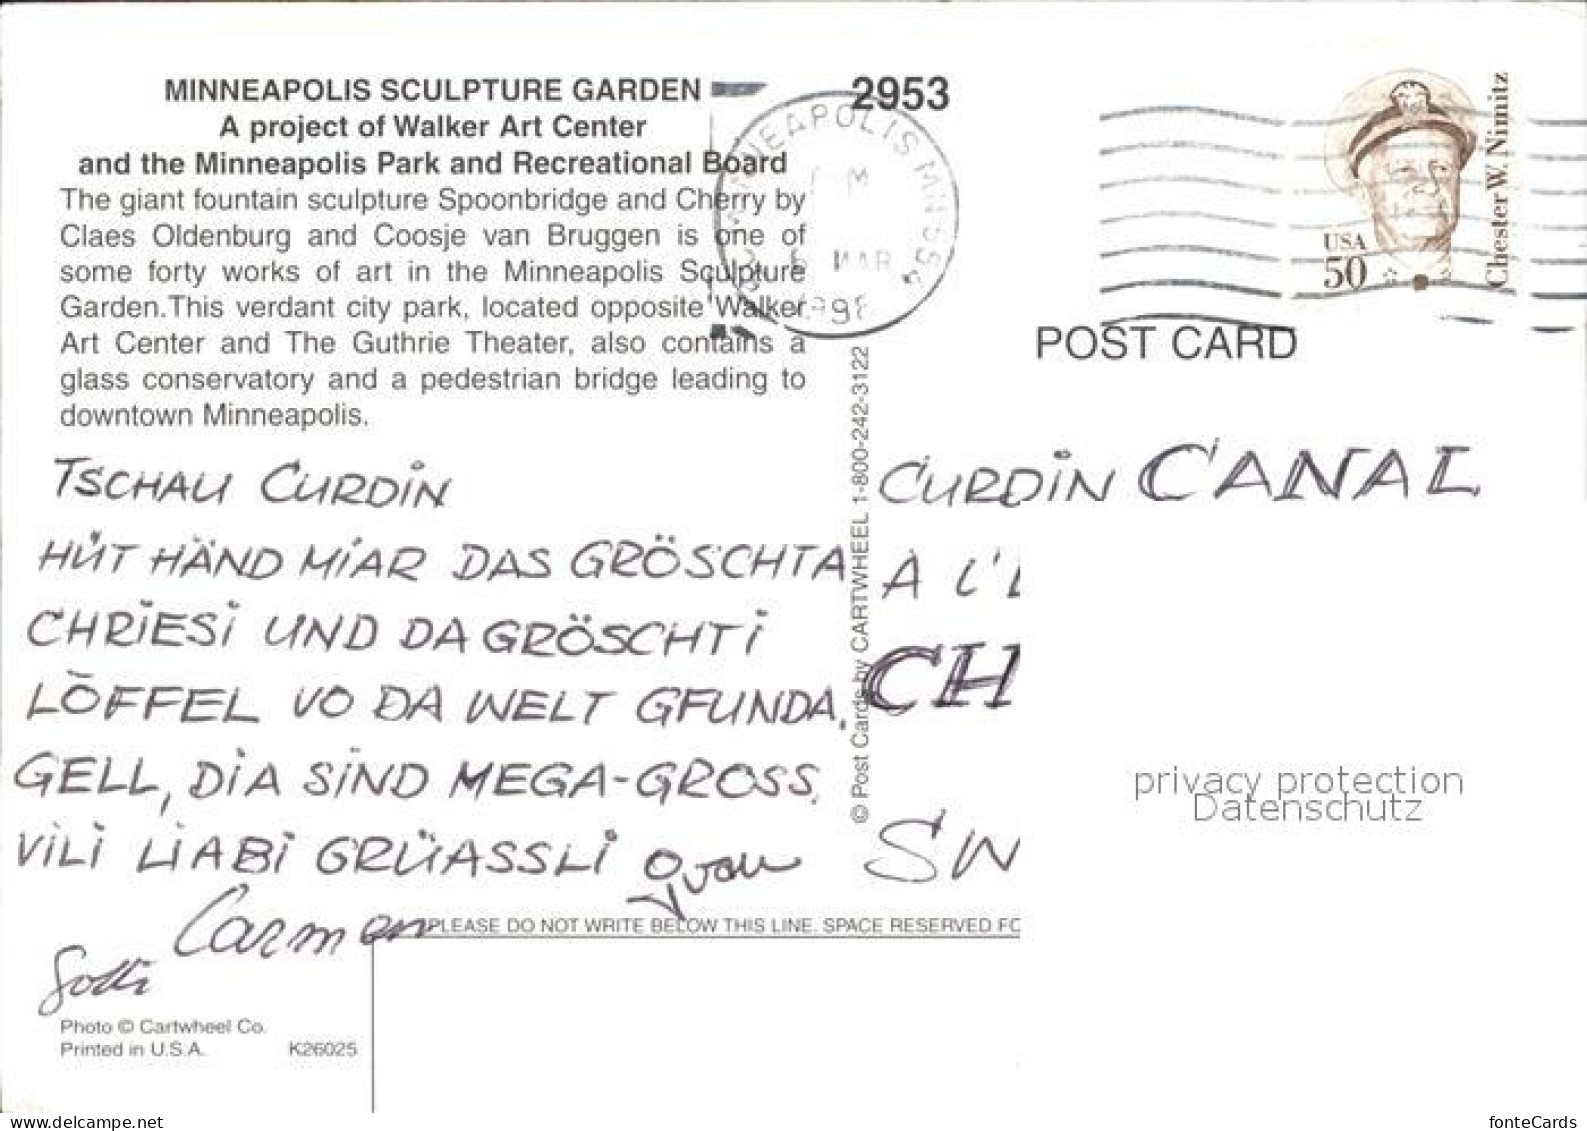 MINNEAPOLIS SCULPTURE GARDEN
A project of Walker Art Center
and the Minneapolis Park and Recreational Board
The giant fountain sculpture Spoonbridge and Cherry by
Claes Oldenburg and Coosje van Bruggen is one of
some forty works of art in the Minneapolis Sculpture
Garden.This verdant city park, located opposite Walker
Art Center and The Guthrie Theater, also contains a
glass conservatory and a pedestrian bridge leading to
downtown Minneapolis.
2953
MINNEAPOLIS MN 554
MAR
USA
50
Chester W. Nimitz
POST CARD
TSCHAU CURDIN
HÜT HÄND MIAR DAS GRÖSCHTA
CHRIESI UND DA GRÖSCHTI
LÖFFEL VO DA WELT GFUNDA.
GELL, DIA SIND MEGA-GROSS.
VILI LIABI GRÜASSLI
Carmen
Gotti
© Post Cards by CARTWHEEL 1-800-242-3122
CURDIN CANAL
A L'
CH
SW
privacy protection
Datenschutz
PLEASE DO NOT WRITE BELOW THIS LINE. SPACE RESERVED FO
Photo © Cartwheel Co.
Printed in U.S.A.
K26025
www.delcampe.net
fonteCards